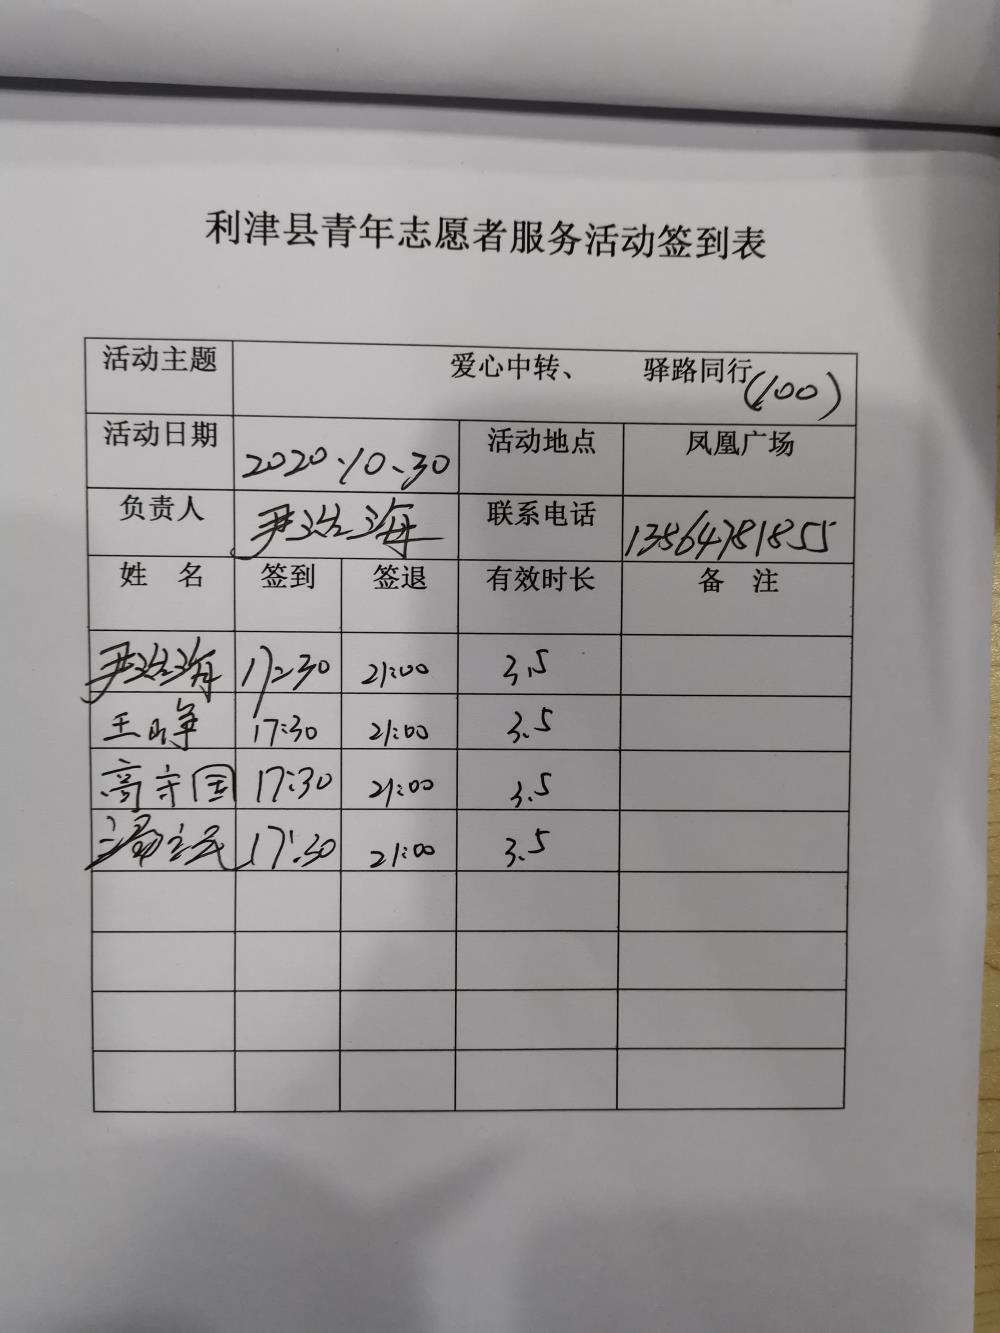 利津县青年志愿者服务活动签到表
活动主题 爱心中转、 驿路同行 (100)
活动日期 2020.10.30 活动地点 凤凰广场
负责人 尹海 联系电话 13864781855
姓 名 签到 签退 有效时长 备 注
尹海 17:30 21:00 3.5
王峥 17:30 21:00 3.5
高守国 17:30 21:00 3.5
17:30 21:00 3.5